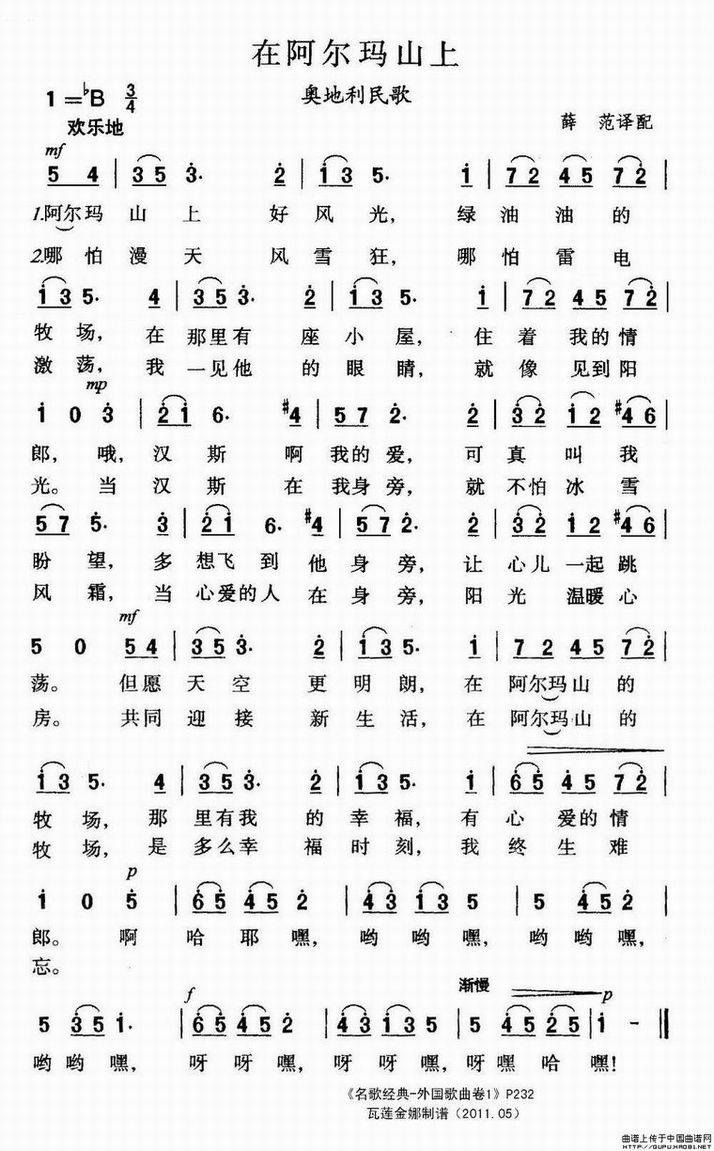 在阿尔玛山上
1=♭B 3/4
奥地利民歌
欢乐地
薛 范译配
mf
5 4 | 3 5 3· 2 | 1 3 5· 1 | 7 2 4 5 7 2 |
1.阿尔玛 山 上 好 风 光, 绿 油 油 的
2.哪 怕 漫 天 风 雪 狂, 哪 怕 雷 电
1 3 5· 4 | 3 5 3· 2 | 1 3 5· 1 | 7 2 4 5 7 2 |
牧 场, 在 那里有 座 小 屋, 住 着 我的 情
激 荡, 我 一见他 的 眼 睛, 就 像 见到 阳
mp
1 0 3 | 2 1 6· #4 | 5 7 2· 2 | 3 2 1 2 #4 6 |
郎, 哦, 汉 斯 啊 我的 爱, 可 真 叫 我
光。 当 汉 斯 在 我身 旁, 就 不怕 冰 雪
5 7 5· 3 | 2 1 6· #4 | 5 7 2· 2 | 3 2 1 2 #4 6 |
盼 望, 多 想飞 到 他 身 旁, 让 心儿 一起 跳
风 霜, 当 心爱的 人 在 身 旁, 阳 光 温暖 心
mf
5 0 5 4 | 3 5 3· 2 | 1 3 5· 1 | 7 2 4 5 7 2 |
荡。 但愿 天 空 更 明 朗, 在 阿尔玛山 的
房。 共同 迎 接 新 生 活, 在 阿尔玛山 的
1 3 5· 4 | 3 5 3· 2 | 1 3 5· 1 | 6 5 4 5 7 2 |
牧 场, 那 里有我 的 幸 福, 有 心 爱的 情
牧 场, 是 多么幸 福 时 刻, 我 终 生 难
p
1 0 5 | 6 5 4 5 2 | 4 3 1 3 5 | 5 4 5 2 |
郎。 啊 哈 耶 嘿, 哟 哟 嘿, 哟 哟 嘿,
忘。
f 渐慢 p
5 3 5 1· | 6 5 4 5 2 | 4 3 1 3 5 | 5 4 5 2 5 | 1 - ‖
哟 哟 嘿, 呀 呀 嘿, 呀 呀 嘿, 呀 嘿 哈 嘿!
《名歌经典-外国歌曲卷1》P232
瓦莲金娜制谱(2011.05)
曲谱上传于中国曲谱网
HTTP://QUPU.YAOBI.NET